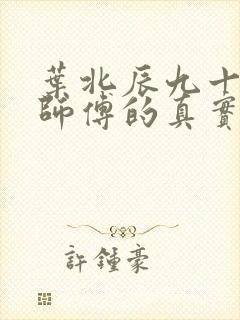 葉北辰九十
師傅的真實
許鍾豪